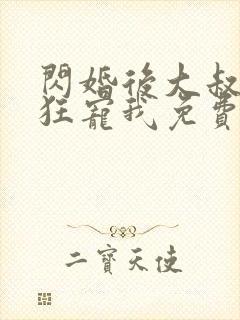 閃婚後大叔
狂寵我免費
二寶天使